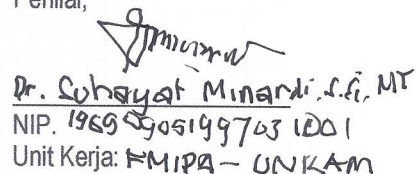 Penilai,
Dr. Suhayat Minardi, S.Si, MT
NIP. 19650905199703 1001
Unit Kerja: FMIPA - UNRAM